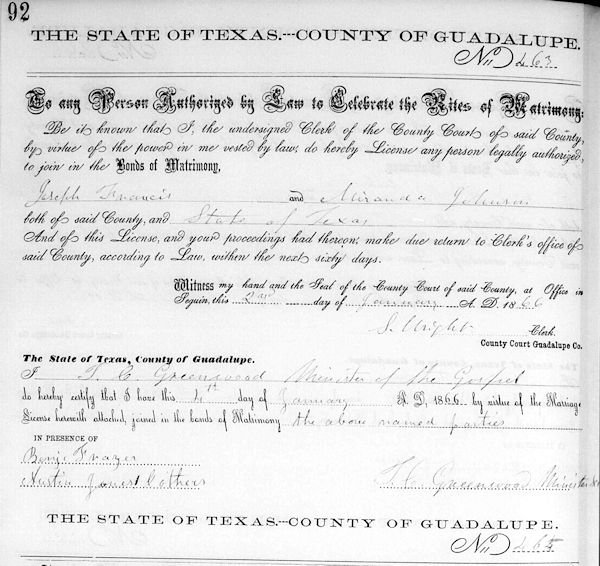 92
THE STATE OF TEXAS.---COUNTY OF GUADALUPE.
No 263
To any Person Authorized by Law to Celebrate the Rites of Matrimony:
Be it known that I, the undersigned Clerk of the County Court of said County,
by virtue of the power in me vested by law, do hereby License any person legally authorized,
to join in the Bonds of Matrimony,
Joseph Francis and Miranda Johnson
both of said County, and State of Texas
And of this License, and your proceedings had thereon, make due return to Clerk's office of
said County, according to Law, within the next sixty days.
Witness my hand and the Seal of the County Court of said County, at Office in
Seguin, this 2nd day of January A. D. 1866
Wright Clerk.
County Court Guadalupe Co.
The State of Texas, County of Guadalupe.
I T C Greenwood Minister of the Gospel
do hereby certify that I have this 4th day of January A. D, 1866 by virtue of the Marriage
License herewith attached, joined in the bonds of Matrimony the above named parties
IN PRESENCE OF
Benj Frazer
Austin Jones & others
T C Greenwood Minister
THE STATE OF TEXAS.---COUNTY OF GUADALUPE.
No